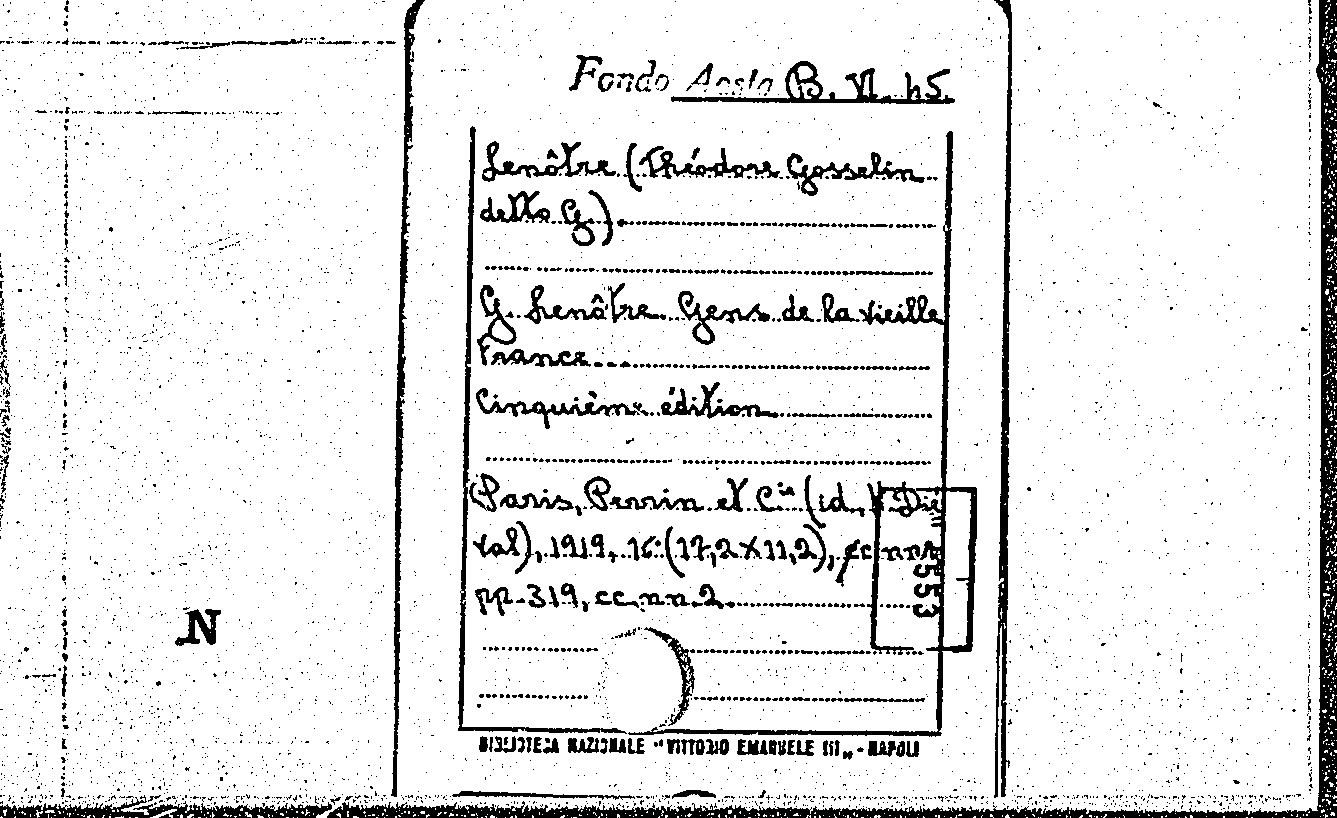 Fondo Aosta B. VI. 45.
Lenôtre (Théodore Gosselin
detto G.).
G. Lenôtre. Gens de la vieille
France...
Cinquième édition.
(Paris, Perrin et Cie (id., Dié
val), 1919, 16° (17,2 X 11,2), cc nn
pp. 319, cc. nn. 2.
553
N
BIBLIOTECA NAZIONALE "VITTORIO EMANUELE III" - NAPOLI